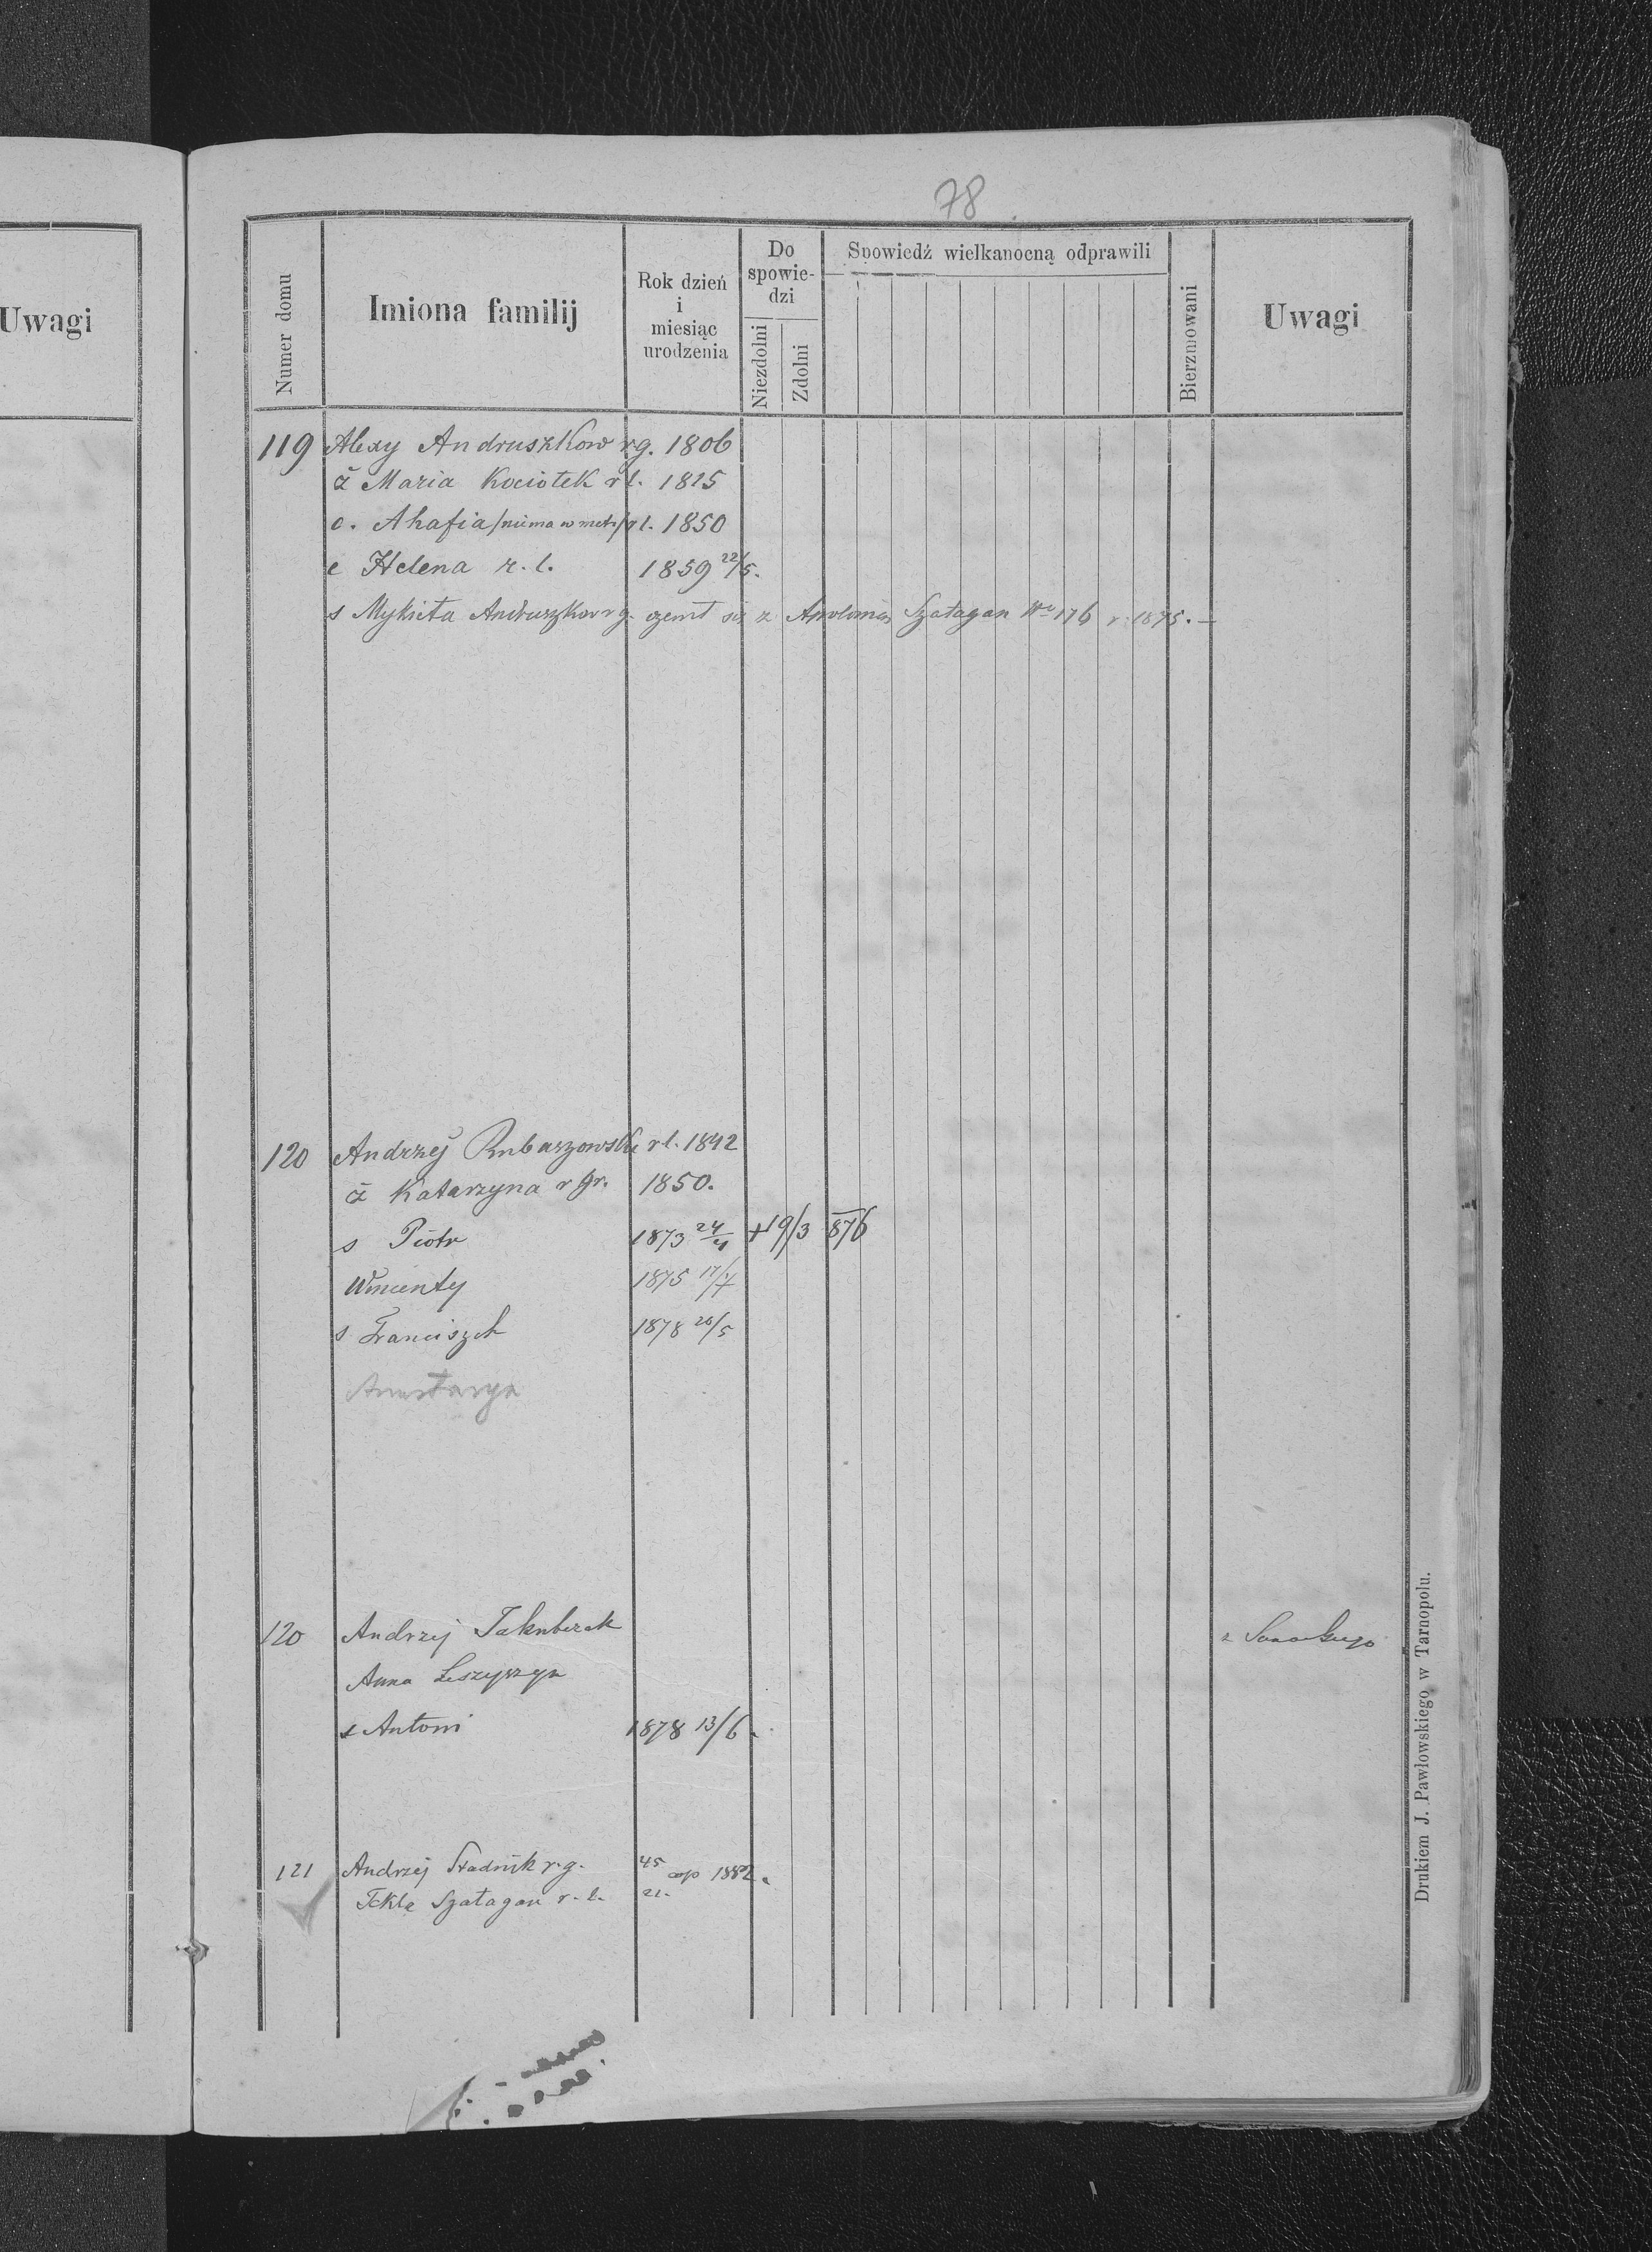 78
Uwagi
Numer domu
Imiona familij
Rok dzień
i
miesiąc
urodzenia
Do
spowie-
dzi
Niezdolni
Zdolni
Spowiedź wielkanocną odprawili
Bierzmowani
Uwagi
119 Alexy Andruszkow rg. 1806
ż Maria Kociołek rł. 1825
c. Ahafia /niema w metr/ rł. 1850
c Helena r. l. 1859 22/5.
s Mykieta Andruszkow rg. ożenił się z Apolonią Szałagan No 176 r. 1875. —
120 Andrzej rl. 1842
ż Katarzyna r gr. 1850.
s Piotr 1873 24/4 +19/3 876
Wincenty 1875 17/7
s Franciszek 1878 26/5
Anastazya
120 Andrzej Jakubczak
z
Anna Leszyszyn
s Antoni 1878 13/6.
121 Andrzej Stadnik r. g. 45 cop 1882.
Tekla Szałagan r. l. 21.
Drukiem J. Pawłowskiego w Tarnopolu.